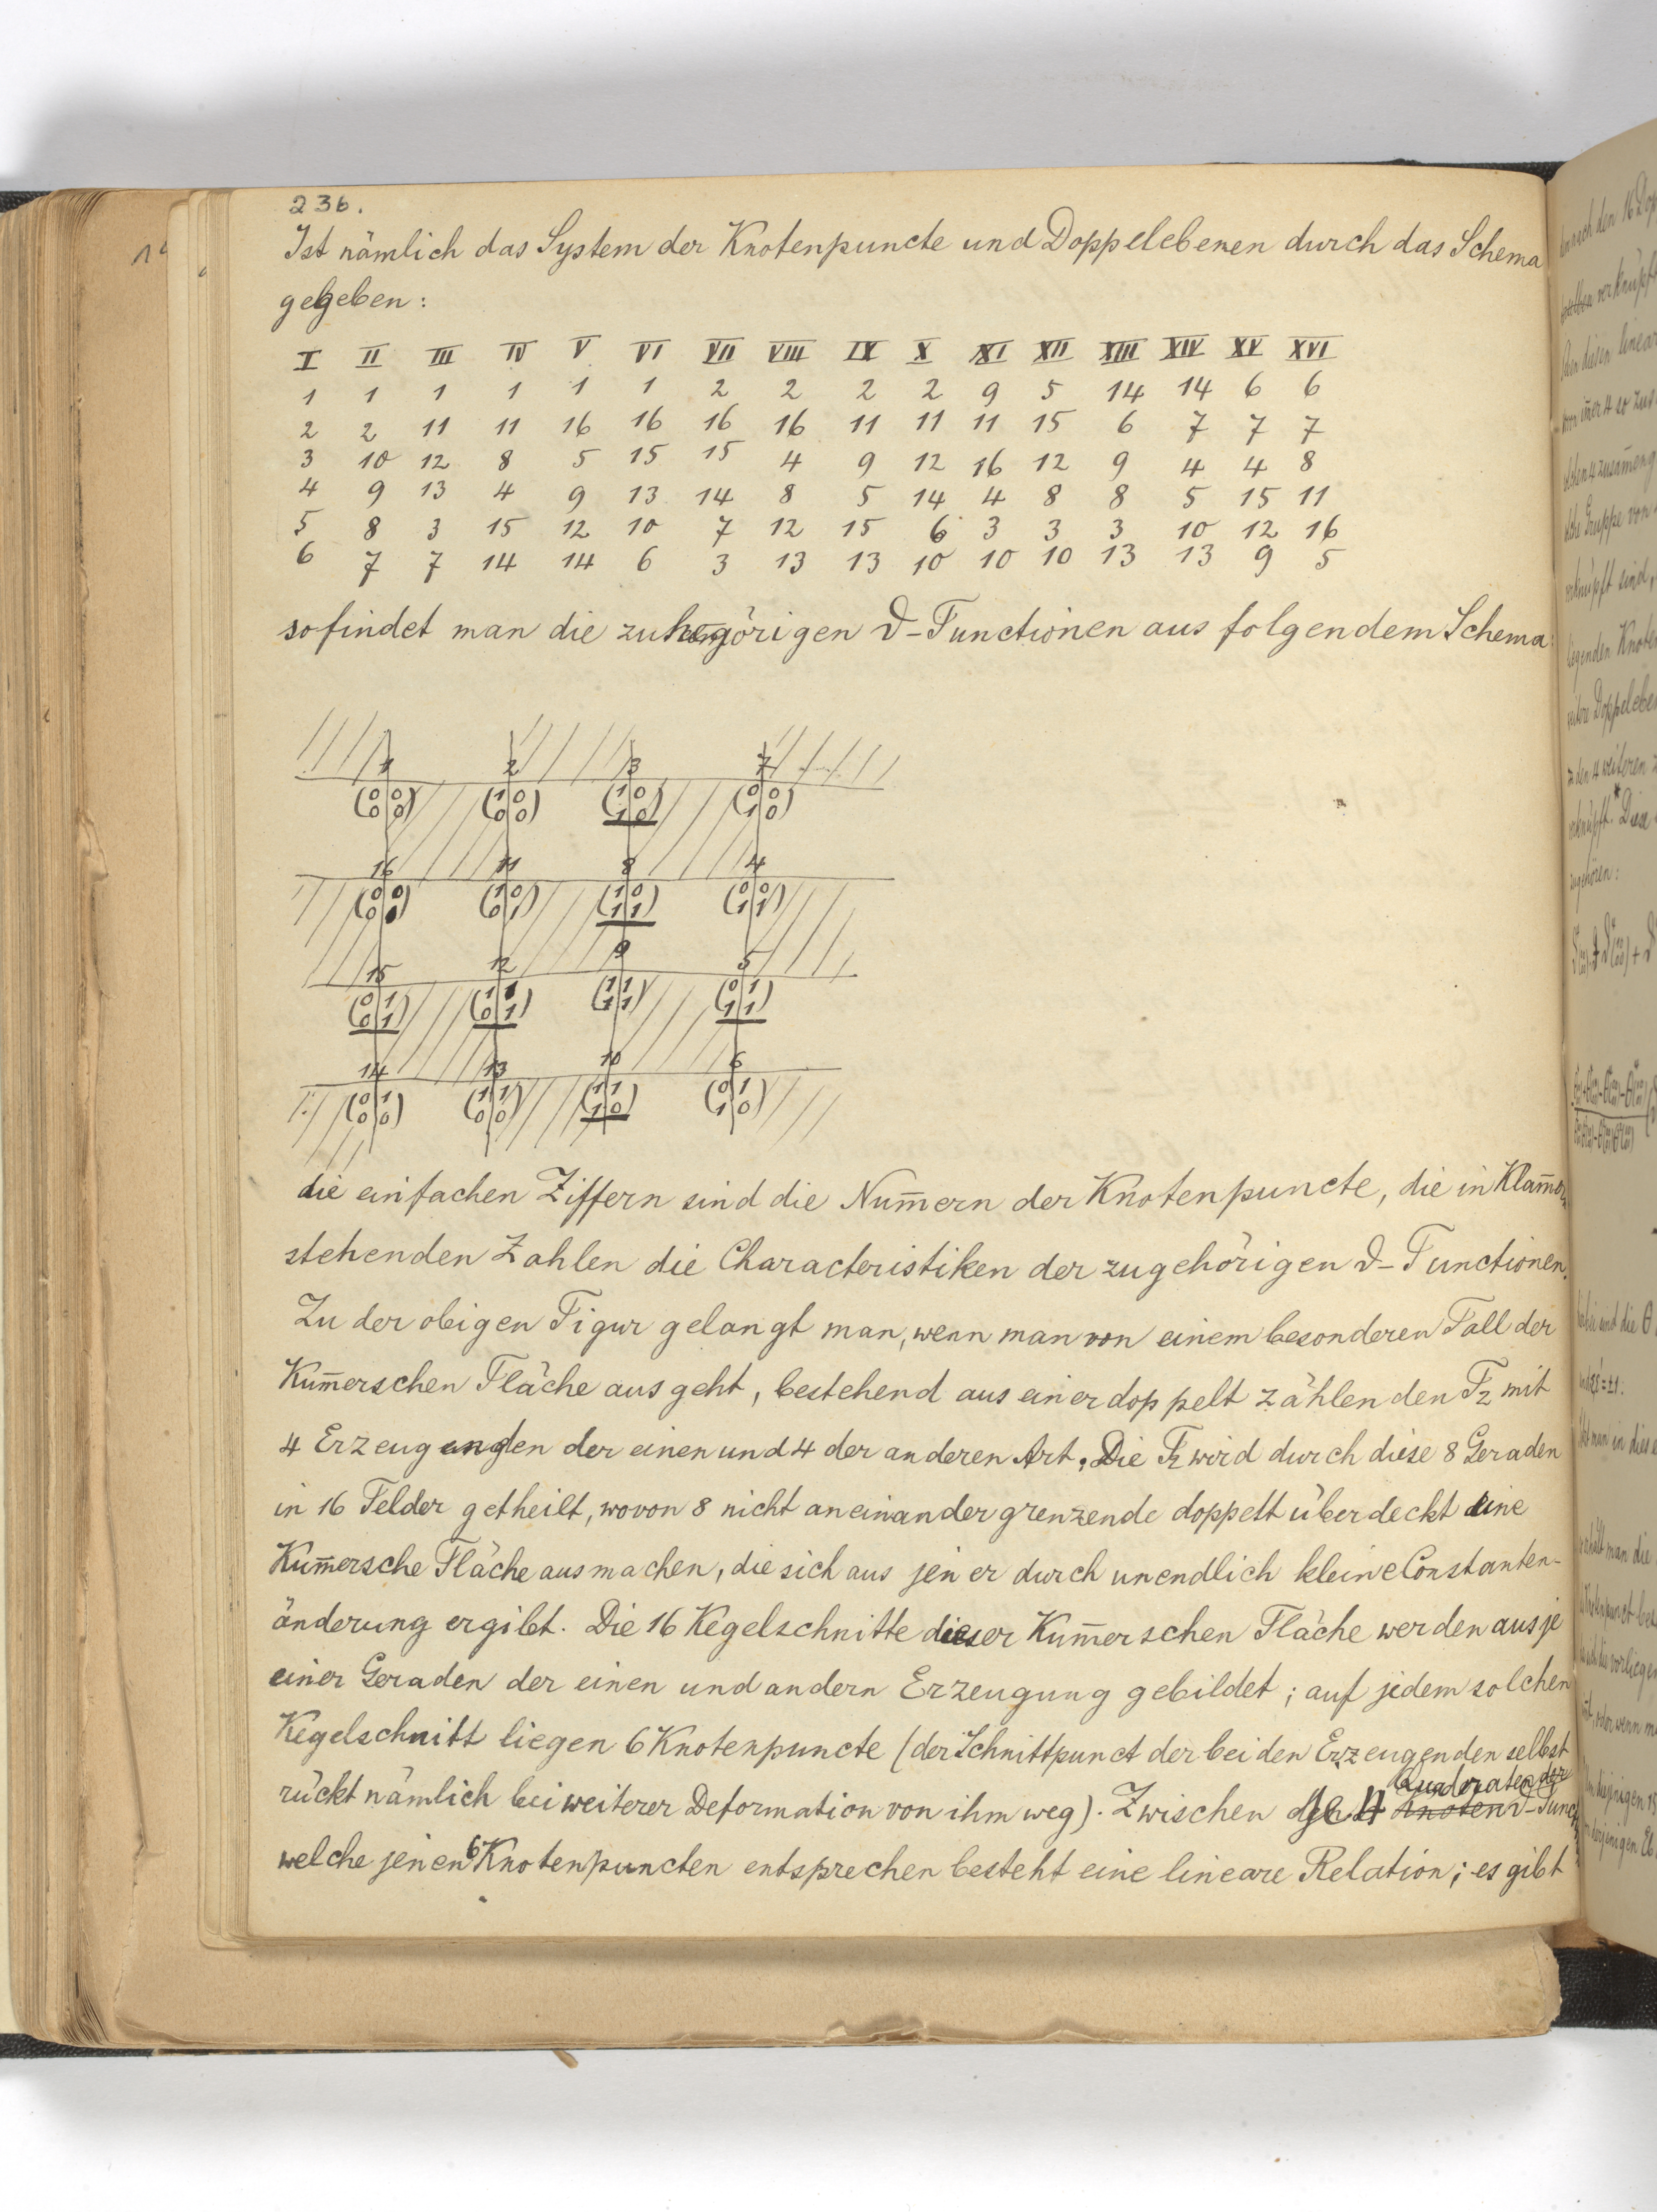 236.
Ist nämlich das System der Knotenpuncte und Doppelebenen durch das Schema
gegeben:
I II III IV V VI VII VIII IX X XI XII XIII XIV XV XVI
1 1 1 1 1 1 2 2 2 2 9 5 14 14 6 6
2 2 11 11 16 16 16 16 11 11 11 15 6 7 7 7
3 10 12 8 5 15 15 4 9 12 16 12 9 4 4 8
4 9 13 4 9 13 14 8 5 14 4 8 8 5 15 11
5 8 3 15 12 10 7 12 15 6 3 3 3 10 12 16
6 7 7 14 14 6 3 13 13 10 10 10 13 13 9 5
so findet man die zugehörigen ϑ-Functionen aus folgendem Schema:
1 2 3 7
(0 0) (1 0) (1 0) (0 0)
(0 0) (0 0) (1 0) (1 0)
16 11 8 4
(0 0) (1 0) (1 0) (0 0)
(0 1) (0 1) (1 1) (1 1)
15 12 9 5
(0 1) (1 1) (1 1) (0 1)
(0 1) (0 1) (1 1) (1 1)
14 13 10 6
(0 1) (1 1) (1 1) (0 1)
(0 0) (0 0) (1 0) (1 0)
die einfachen Ziffern sind die Num̄ern der Knotenpuncte, die in Klam̄er
stehenden Zahlen die Characteristiken der zugehörigen ϑ-Functionen.
Zu der obigen Figur gelangt man, wenn man von einem besonderen Fall der
Kum̄erschen Fläche ausgeht, bestehend aus einer doppelt zählenden F₂ mit
4 Erzeugenden der einen und 4 der anderen Art. Die F₂ wird durch diese 8 Geraden
in 16 Felder getheilt, wovon 8 nicht aneinandergrenzende doppelt überdeckt eine
Kum̄ersche Fläche ausmachen, die sich aus jener durch unendlich kleine Constanten-
änderung ergibt. Die 16 Kegelschnitte dieser Kum̄erschen Fläche werden aus je
einer Geraden der einen und andern Erzeugung gebildet; auf jedem solchen
Kegelschnitt liegen 6 Knotenpuncte (der Schnittpunct der beiden Erzeugenden selbst
Quadraten der
rückt nämlich bei weiterer Deformation von ihm weg). Zwischen je 4 Knoten ϑ-Funct
welche jenen 6 Knotenpuncten entsprechen besteht eine lineare Relation; es gibt